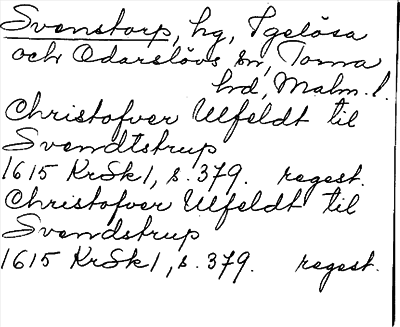 Svenstorp, hg, Igelösa
och Odarslövs sn, Torna
hd, Malm.l.
Christofver Ulfeldt til
Svendtstrup
1615 KrSk1, s. 379. regest.
Christofver Ulfeldt til
Svendstrup
1615 KrSk1, s. 379. regest.